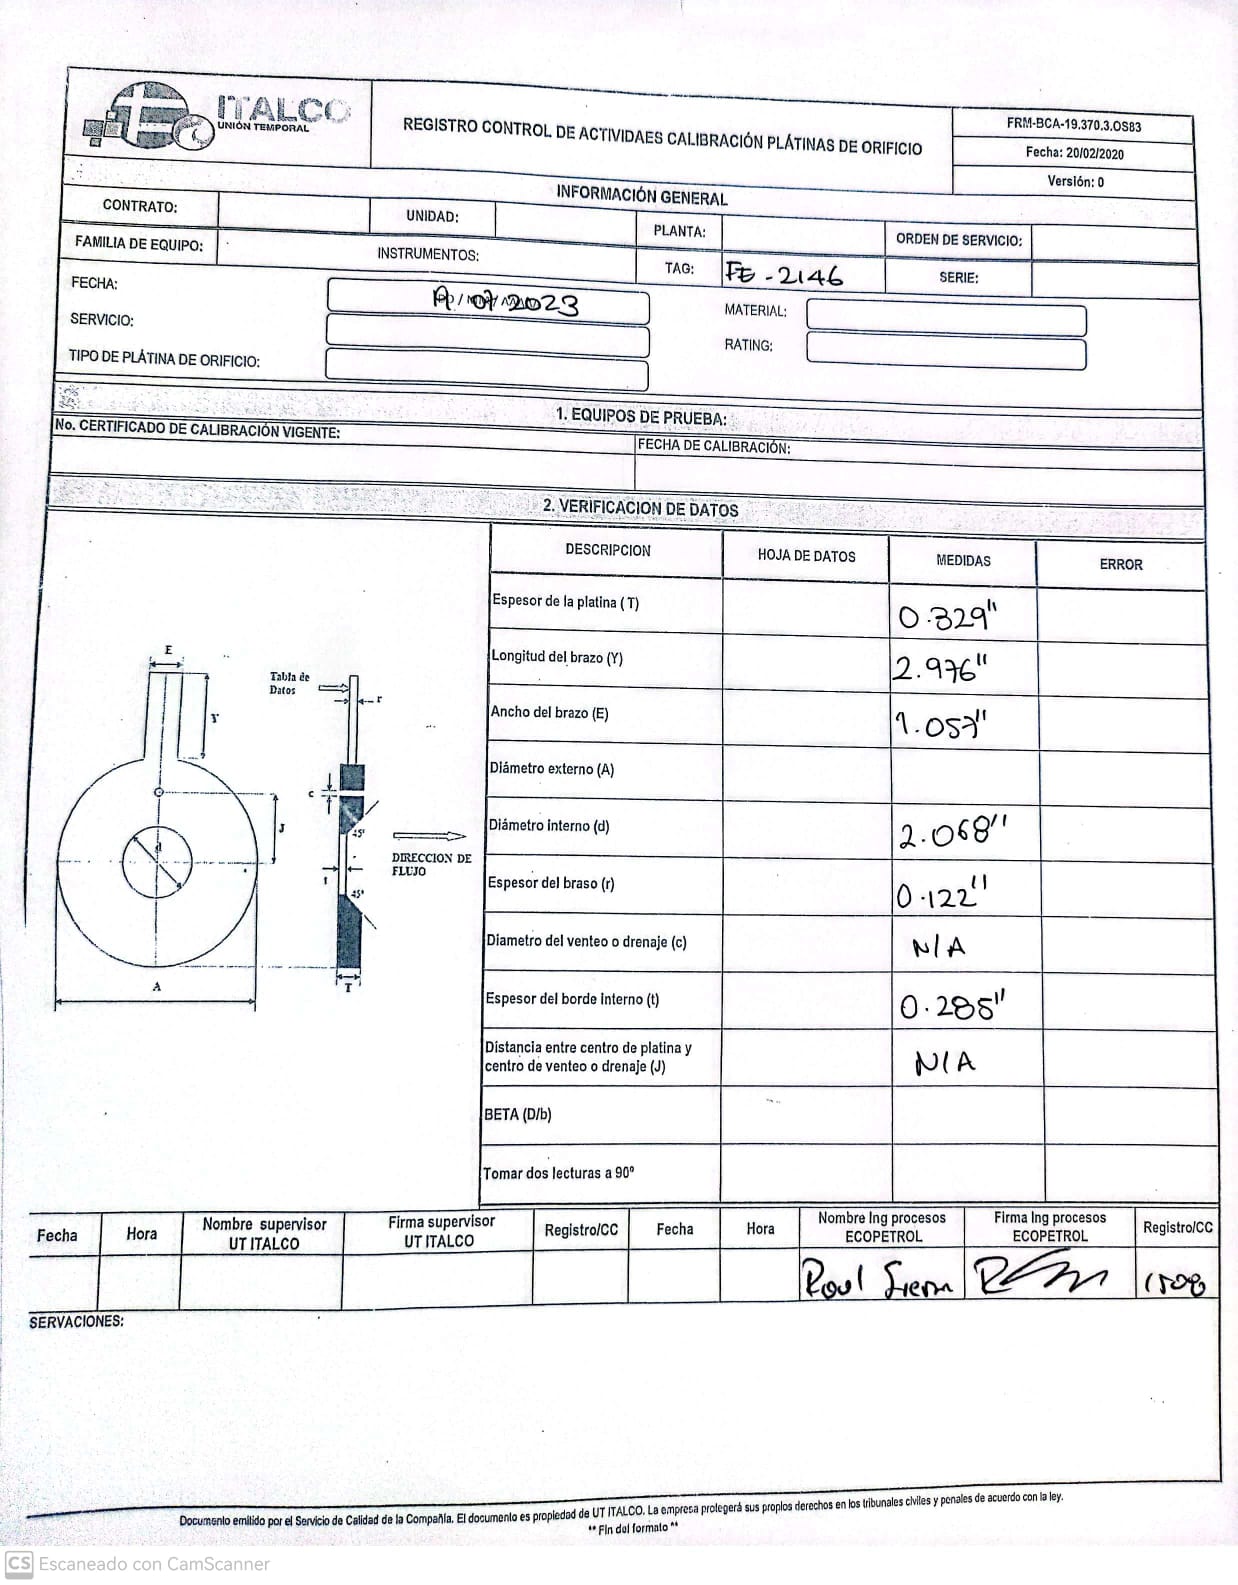 ITALCO
UNIÓN TEMPORAL
REGISTRO CONTROL DE ACTIVIDAES CALIBRACIÓN PLÁTINAS DE ORIFICIO
FRM-BCA-19.370.3.OS83
Fecha: 20/02/2020
Versión: 0
INFORMACIÓN GENERAL
CONTRATO:
UNIDAD:
PLANTA:
ORDEN DE SERVICIO:
FAMILIA DE EQUIPO:
INSTRUMENTOS:
TAG: FE-2146
SERIE:
FECHA: 07/2023
MATERIAL:
SERVICIO:
RATING:
TIPO DE PLÁTINA DE ORIFICIO:
1. EQUIPOS DE PRUEBA:
No. CERTIFICADO DE CALIBRACIÓN VIGENTE:
FECHA DE CALIBRACIÓN:
2. VERIFICACION DE DATOS
DESCRIPCION HOJA DE DATOS MEDIDAS ERROR
Espesor de la platina (T) 0.329"
Longitud del brazo (Y) 2.976"
Ancho del brazo (E) 1.057"
Diámetro externo (A)
Diámetro interno (d) 2.068"
Espesor del braso (r) 0.122"
Diametro del venteo o drenaje (c) N/A
Espesor del borde interno (t) 0.285"
Distancia entre centro de platina y
centro de venteo o drenaje (J) N/A
BETA (D/b)
Tomar dos lecturas a 90º
E
Y
Tabla de
Datos
r
c
J
45º
d
DIRECCION DE
FLUJO
t
45º
A
T
Fecha Hora Nombre supervisor UT ITALCO Firma supervisor UT ITALCO Registro/CC Fecha Hora Nombre Ing procesos ECOPETROL Firma Ing procesos ECOPETROL Registro/CC
Raul Sierra
SERVACIONES:
Documento emitido por el Servicio de Calidad de la Compañía. El documento es propiedad de UT ITALCO. La empresa protegerá sus propios derechos en los tribunales civiles y penales de acuerdo con la ley.
** Fin del formato **
CS Escaneado con CamScanner